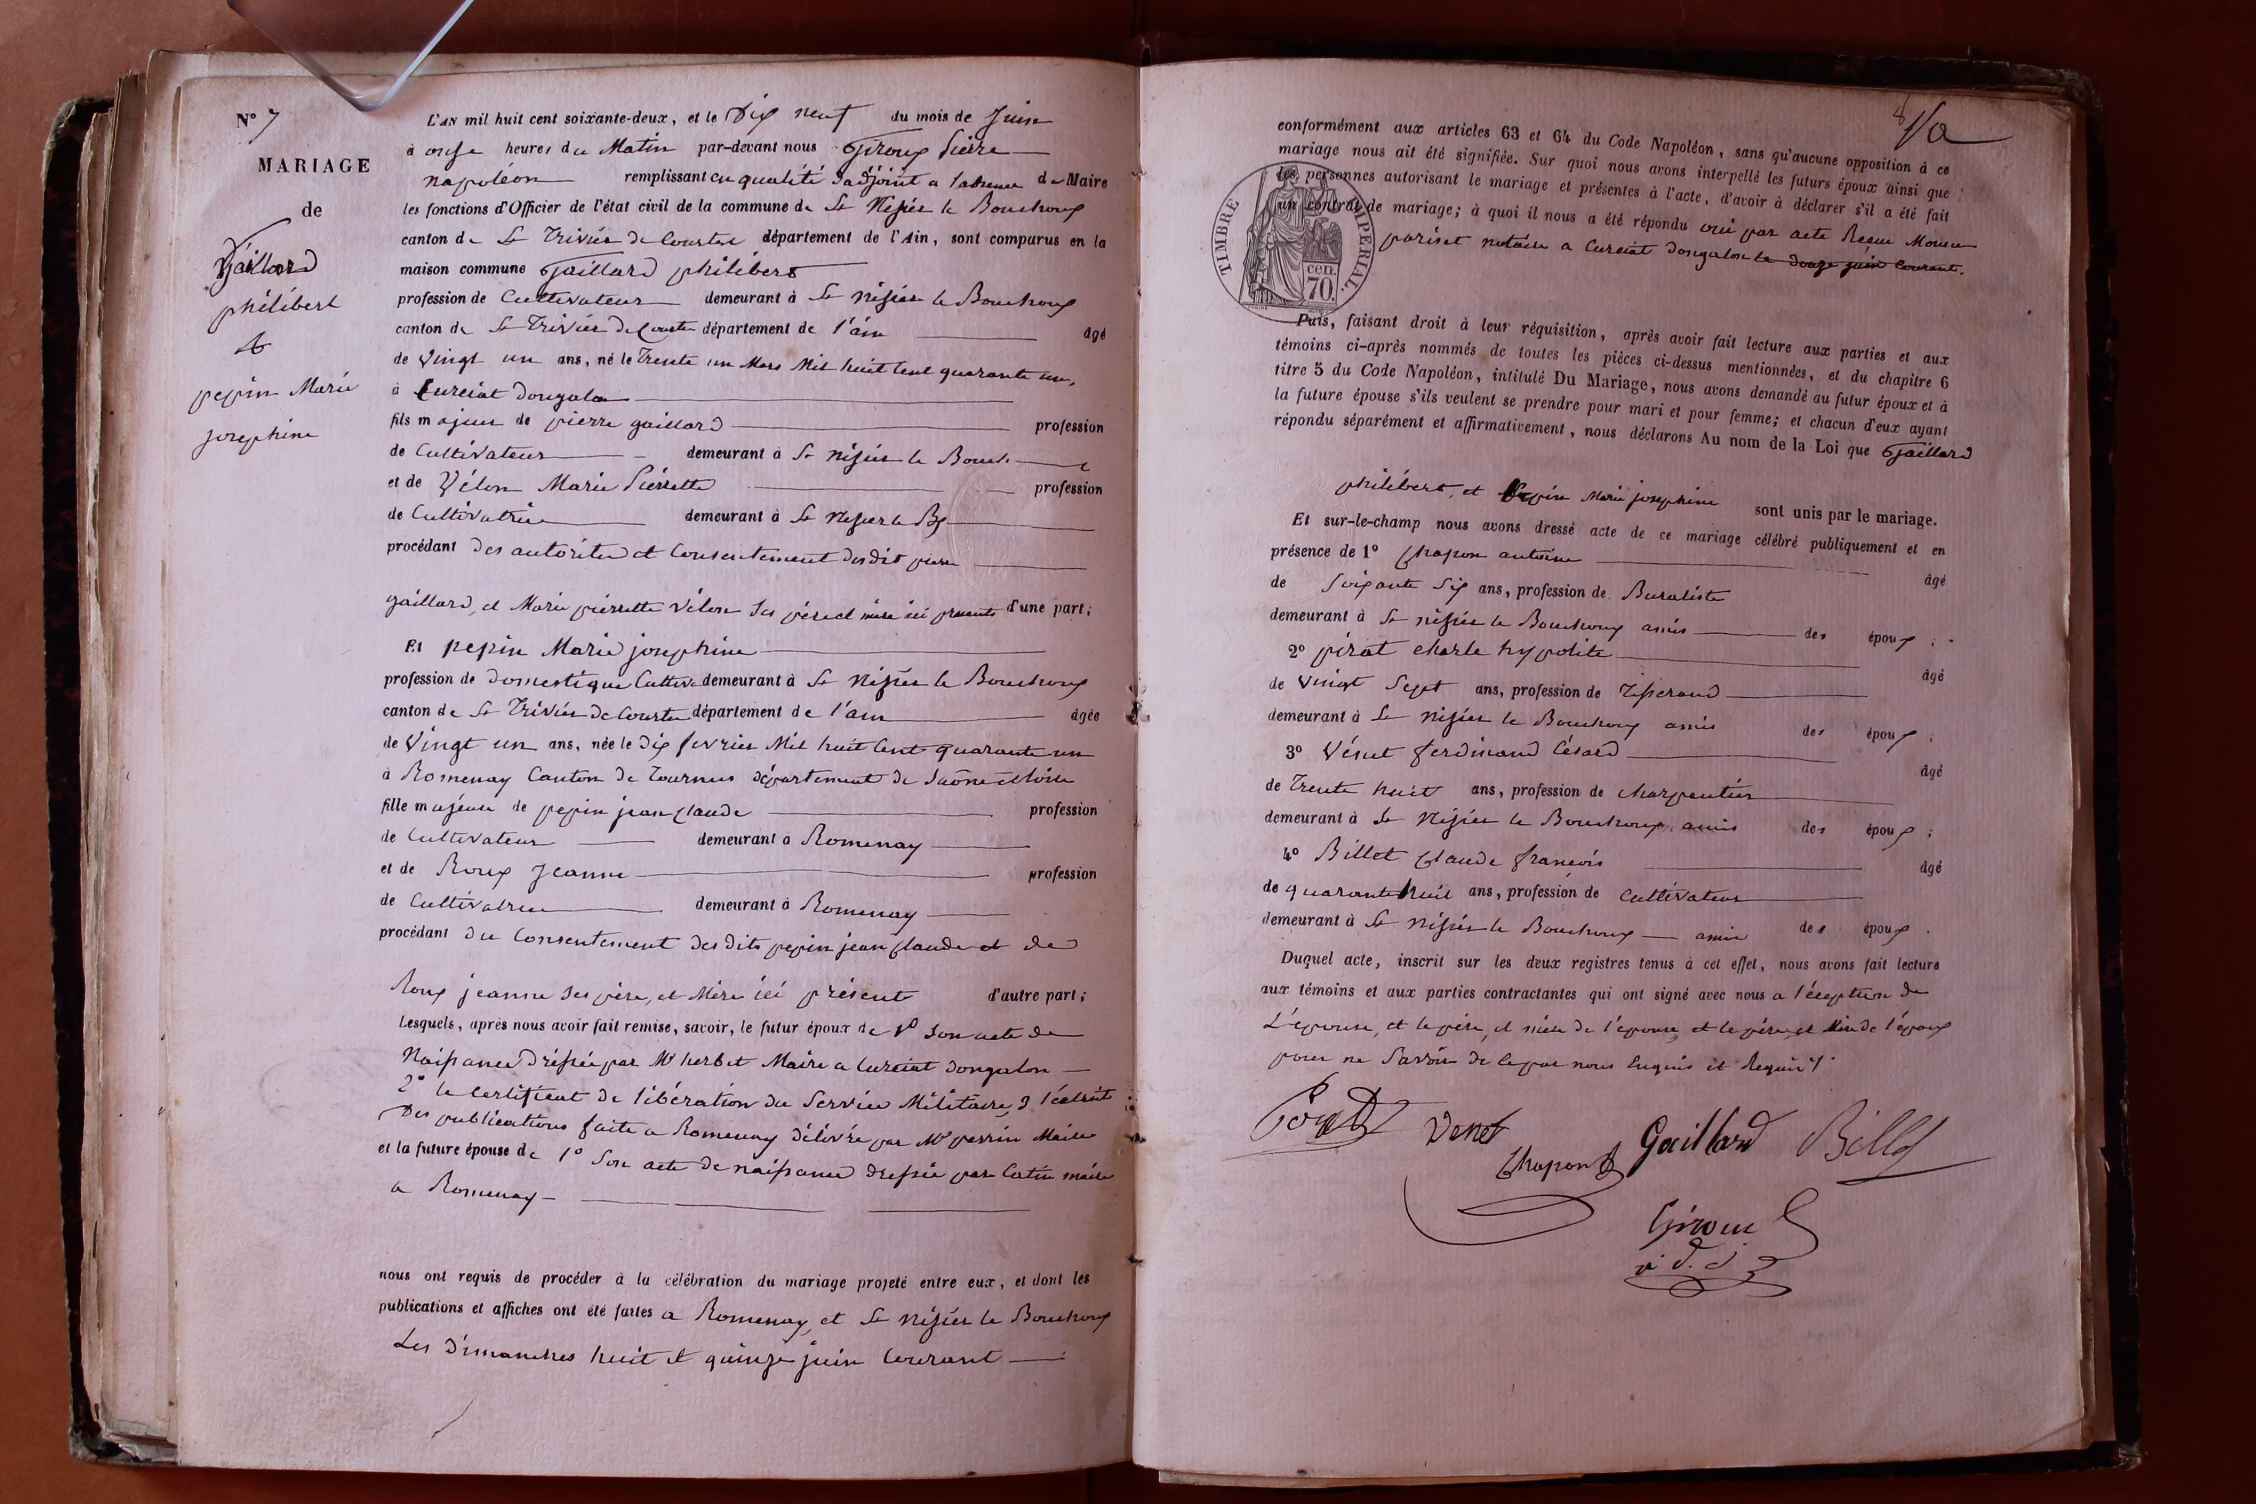 N° 7
MARIAGE
de
Gaillard
philibert
&
pepin Marie
josephine
L'AN mil huit cent soixante-deux, et le Dix neuf du mois de Juin
à onze heures du Matin par-devant nous Giroux Pierre
napoléon remplissant en qualité d'adjoint a l'absence de Maire
les fonctions d'Officier de l'état civil de la commune de St Nizier le Bouchoux
canton de St Trivier de Courtes département de l'Ain, sont comparus en la
maison commune Gaillard philibert
profession de Cultivateur demeurant à St Nizier le Bouchoux
canton de St Trivier de Courtes département de l'ain âgé
de Vingt un ans, né le Trente un Mars Mil huit Cent quarante un,
à Curciat Dongalon
fils majeur de pierre gaillard profession
de Cultivateur demeurant à St Nizier le Bouch
et de Vélon Marie Pierrette profession
de Cultivatrice demeurant à St Nizier le Bx
procédant des autorité et Consentement desdit pierre
gaillard, et Marie pierrette Vélon ses père et mère ici présents d'une part;
Et pepin Marie josephine
profession de domestique Cultiv. demeurant à St Nizier le Bouchoux
canton de St Trivier de Courtes département de l'ain âgée
de Vingt un ans, née le dix fevrier Mil huit Cent quarante un
à Romenay Canton de Tournus département de Saône et Loire
fille majeure de pepin jean Claude profession
de Cultivateur demeurant à Romenay
et de Roux Jeanne profession
de Cultivatrice demeurant à Romenay
procédant du Consentement des dits pepin jean Claude et de
Roux jeanne ses père, et Mère ici présents d'autre part;
Lesquels, après nous avoir fait remise, savoir, le futur époux de 1° Son acte de
Naissance dréssée par Mr herbet Maire a Curciat dongalon
2° le Certificat de libération du Service Militaire, 3 l'extrait
Des publications faite a Romenay délivré par Mr perrin Maire
et la future épouse de 1° Son acte de naissance dressée par Catin maire
a Romenay
nous ont requis de procéder à la célébration du mariage projeté entre eux, et dont les
publications et affiches ont été faites a Romenay, et St Nizier le Bouchoux
Les Dimanches huit et quinze juin Courant
conformément aux articles 63 et 64 du Code Napoléon, sans qu'aucune opposition à ce
mariage nous ait été signifiée. Sur quoi nous avons interpellé les futurs époux ainsi que
les personnes autorisant le mariage et présentes à l'acte, d'avoir à déclarer s'il a été fait
un contrat de mariage; à quoi il nous a été répondu oui par acte Reçu Monsieur
pariset notaire a Curciat dongalon le douze juin Courant.
TIMBRE IMPERIAL
70 cen.
Puis, faisant droit à leur réquisition, après avoir fait lecture aux parties et aux
témoins ci-après nommés de toutes les pièces ci-dessus mentionnées, et du chapitre 6
titre 5 du Code Napoléon, intitulé Du Mariage, nous avons demandé au futur époux et à
la future épouse s'ils veulent se prendre pour mari et pour femme; et chacun d'eux ayant
répondu séparément et affirmativement, nous déclarons Au nom de la Loi que Gaillard
philibert, et Pepin Marie josephine sont unis par le mariage.
Et sur-le-champ nous avons dressé acte de ce mariage célébré publiquement et en
présence de 1° Chapon antoine âgé
de Soixante Six ans, profession de Buraliste
demeurant à St nizier le Bouchoux amis des époux;
2° pirat charle hypolite âgé
de Vingt Sept ans, profession de Tisserand
demeurant à St Nizier le Bouchoux amis des époux;
3° Vénet ferdinand Césard âgé
de Trente huit ans, profession de charpentier
demeurant à St Nizier le Bouchoux amis des époux;
4° Billet Claude françois âgé
de quarante huit ans, profession de Cultivateur
demeurant à St Nizier le Bouchoux amis des époux.
Duquel acte, inscrit sur les deux registres tenus à cet effet, nous avons fait lecture
aux témoins et aux parties contractantes qui ont signé avec nous a l'éxeption de
L'épouse, et le père, et mère de l'épouse, et le père, et Mère de l'époux
pour ne Savoir de ce par nous Enquis et Requis.
Venet
Gaillard
Billet
Chapon
Giroux